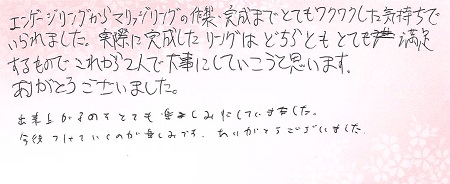 エンゲージリングからマリッジリングの作製・完成までとてもワクワクした気持ちで
いられました。実際に完成したリングはどちらともとても満足
するもので これから2人で大事にしていこうと思います。
ありがとうございました。
出来上がるのをとても楽しみにしていました。
今後つけていくのが楽しみです。ありがとうございました。